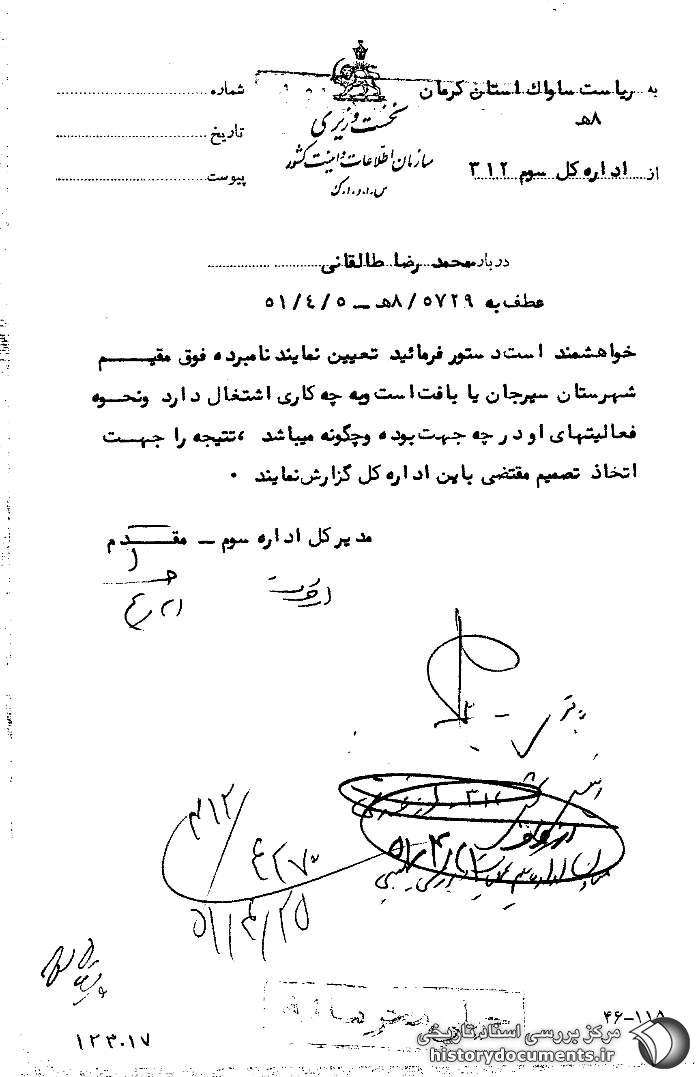 به ریاست ساواک استان کرمان
۸هـ
از اداره کل سوم ۳۱۲
نخست وزیری
سازمان اطلاعات و امنیت کشور
س.ا.و.ا.ک
شماره
تاریخ
پیوست
درباره محمد رضا طالقانی
عطف به ۵۷۲۹/۸هـ – ۵۱/۴/۵
خواهشمند است دستور فرمائید تعیین نمایند نامبرده فوق مقیم
شهرستان سیرجان یا بافت است وبه چه کاری اشتغال دارد ونحوه
فعالیتهای او در چه جهت بوده وچگونه میباشد ، نتیجه را جهت
اتخاذ تصمیم مقتضی باین اداره کل گزارش نمایند .
مدیر کل اداره سوم – مقدم
۳۱۲/
۴۲۷۰
۵۱/۴/۲۵
خیلی محرمانه
۴۶-۱۱۸
۱۲۳۰۱۷
مرکز بررسی اسناد تاریخی
historydocuments.ir